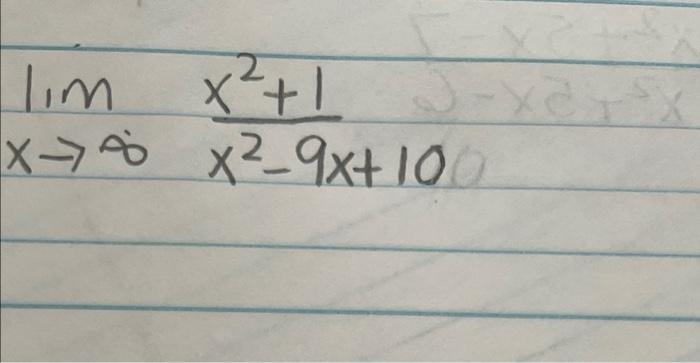 lim x²+1
x→∞ x²-9x+10